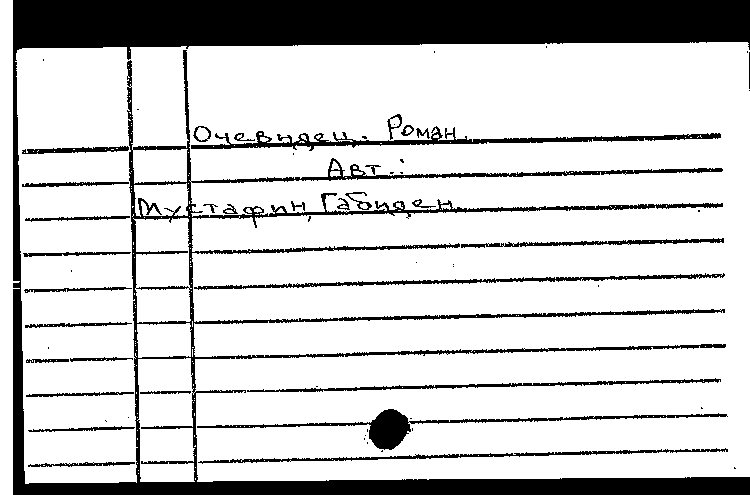 Очевидец. Роман.
Авт.:
Мустафин, Габиден.